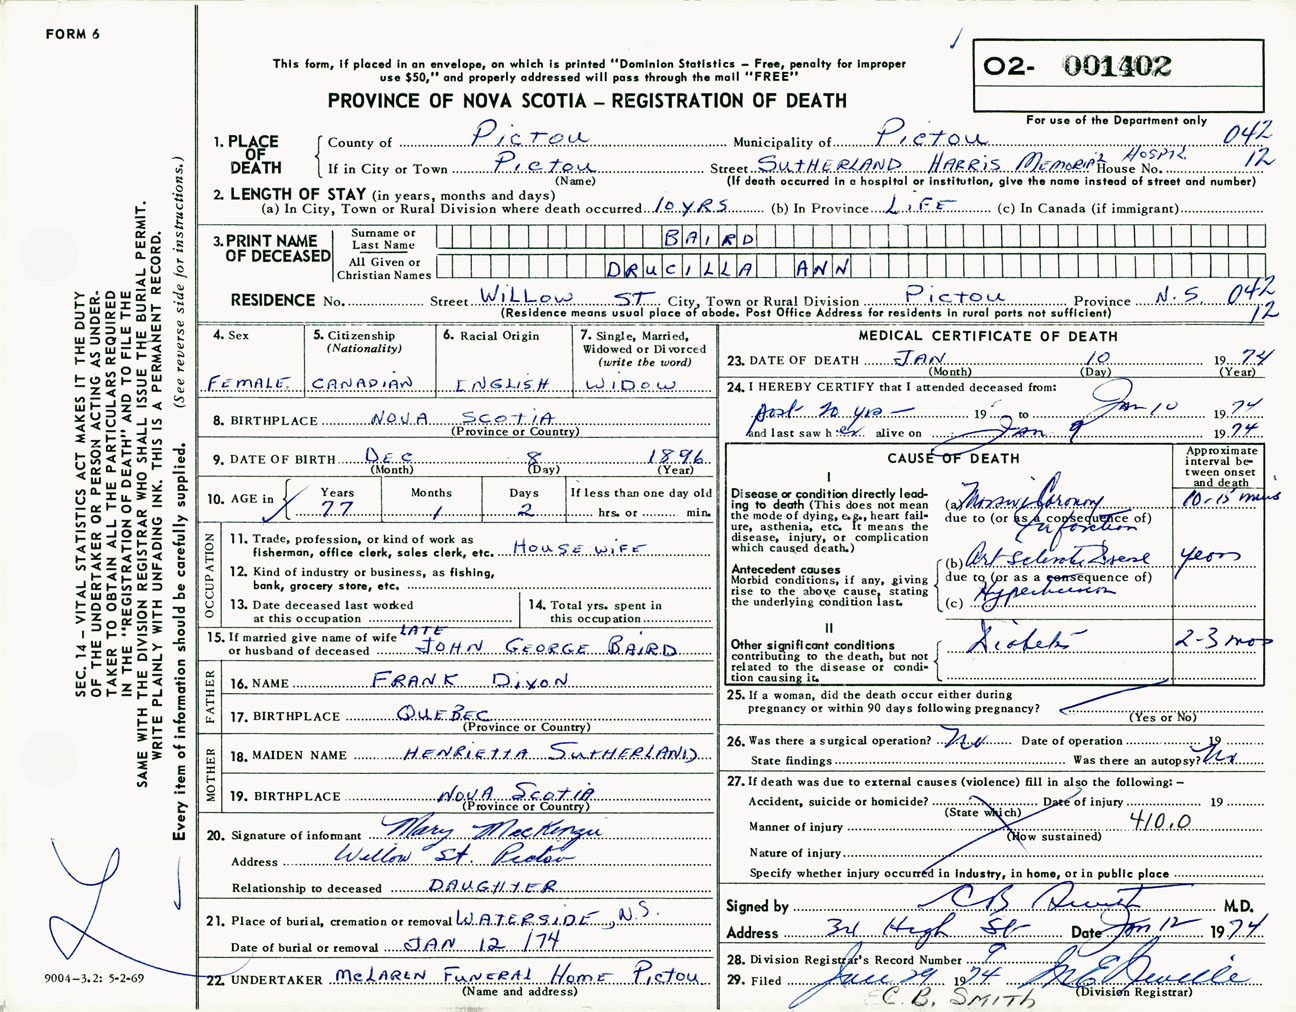 FORM 6
This form, if placed in an envelope, on which is printed "Dominion Statistics – Free, penalty for improper
use $50," and properly addressed will pass through the mail "FREE"
PROVINCE OF NOVA SCOTIA – REGISTRATION OF DEATH
O2- 001402
For use of the Department only
SEC. 14 – VITAL STATISTICS ACT MAKES IT THE DUTY
OF THE UNDERTAKER OR PERSON ACTING AS UNDER-
TAKER TO OBTAIN ALL THE PARTICULARS REQUIRED
IN THE "REGISTRATION OF DEATH" AND TO FILE THE
SAME WITH THE DIVISION REGISTRAR WHO SHALL ISSUE THE BURIAL PERMIT.
WRITE PLAINLY WITH UNFADING INK. THIS IS A PERMANENT RECORD.
Every item of information should be carefully supplied. (See reverse side for instructions.)
1. PLACE OF DEATH
County of PICTOU Municipality of PICTOU 042
If in City or Town PICTOU Street SUTHERLAND HARRIS MEMORIAL HOSPIT. House No. 12
(Name) (If death occurred in a hospital or institution, give the name instead of street and number)
2. LENGTH OF STAY (in years, months and days)
(a) In City, Town or Rural Division where death occurred 10 YRS (b) In Province LIFE (c) In Canada (if immigrant)
3. PRINT NAME OF DECEASED
Surname or Last Name BAIRD
All Given or Christian Names DRUCILLA ANN
RESIDENCE No. Street WILLOW ST City, Town or Rural Division PICTOU Province N.S. 042
(Residence means usual place of abode. Post Office Address for residents in rural parts not sufficient) 12
4. Sex FEMALE
5. Citizenship (Nationality) CANADIAN
6. Racial Origin ENGLISH
7. Single, Married, Widowed or Divorced (write the word) WIDOW
8. BIRTHPLACE NOVA SCOTIA
(Province or Country)
9. DATE OF BIRTH DEC 8 1896
(Month) (Day) (Year)
10. AGE in Years 77 Months 1 Days 2 If less than one day old hrs. or min.
OCCUPATION
11. Trade, profession, or kind of work as
fisherman, office clerk, sales clerk, etc. HOUSEWIFE
12. Kind of industry or business, as fishing,
bank, grocery store, etc.
13. Date deceased last worked
at this occupation
14. Total yrs. spent in
this occupation
15. If married give name of wife LATE
or husband of deceased JOHN GEORGE BAIRD
FATHER
16. NAME FRANK DIXON
17. BIRTHPLACE QUEBEC
(Province or Country)
MOTHER
18. MAIDEN NAME HENRIETTA SUTHERLAND
19. BIRTHPLACE NOVA SCOTIA
(Province or Country)
20. Signature of informant Mary MacKenzie
Address Willow St. Pictou
Relationship to deceased DAUGHTER
21. Place of burial, cremation or removal WATERSIDE, N.S.
Date of burial or removal JAN 12 /74
22. UNDERTAKER MCLAREN FUNERAL HOME PICTOU
(Name and address)
9004–3.2: 5-2-69
MEDICAL CERTIFICATE OF DEATH
23. DATE OF DEATH JAN 10 1974
(Month) (Day) (Year)
24. I HEREBY CERTIFY that I attended deceased from:
past 20 yrs – 19 to Jan 10 1974
and last saw her alive on Jan 9 1974
CAUSE OF DEATH
Approximate interval between onset and death
I
Disease or condition directly lead-
ing to death (This does not mean
the mode of dying, e.g., heart fail-
ure, asthenia, etc. It means the
disease, injury, or complication
which caused death.)
(a) Massive Coronary 10-15 mins
due to (or as a consequence of)
Infarction
Antecedent causes
Morbid conditions, if any, giving
rise to the above cause, stating
the underlying condition last.
(b) Art sclerotic Disease years
due to (or as a consequence of)
(c) Hypertension
II
Other significant conditions
contributing to the death, but not
related to the disease or condi-
tion causing it.
Diabetes 2-3 mos
25. If a woman, did the death occur either during
pregnancy or within 90 days following pregnancy?
(Yes or No)
26. Was there a surgical operation? No Date of operation 19
State findings Was there an autopsy? No
27. If death was due to external causes (violence) fill in also the following: –
Accident, suicide or homicide? Date of injury 19
(State which)
Manner of injury 410.0
(How sustained)
Nature of injury
Specify whether injury occurred in industry, in home, or in public place
Signed by C B M.D.
Address 3rd High St Date Jan 12 1974
28. Division Registrar's Record Number 9
29. Filed Jan 29 1974
(Division Registrar)
C. B. SMITH